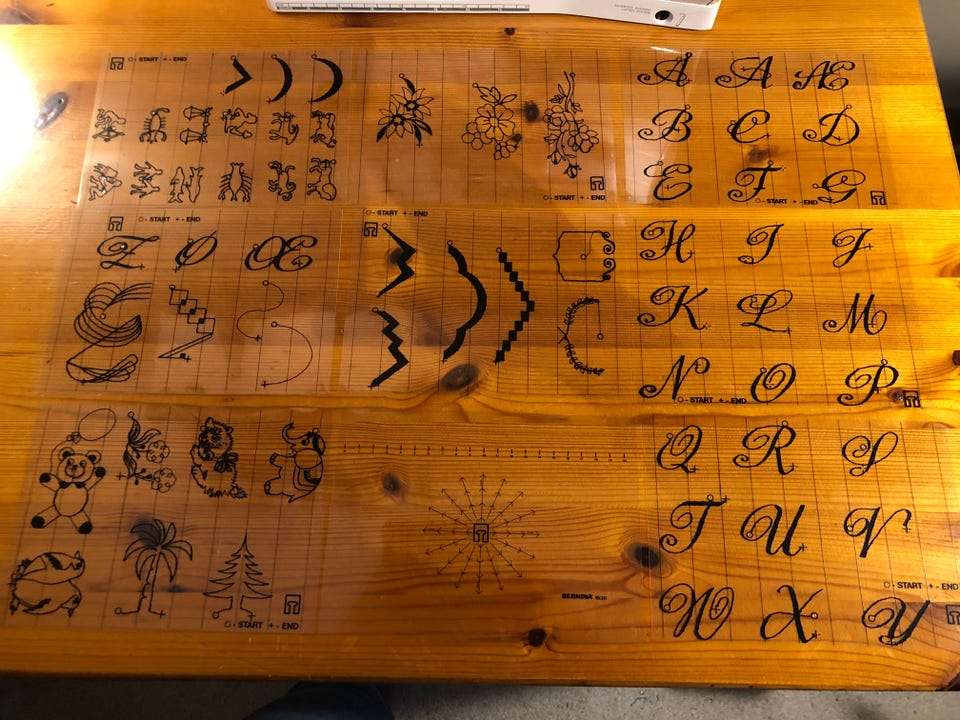 ○ - START + - END
Å A Æ
B C D
E F G
○ - START + - END
○ - START + - END
○ - START + - END
○ - START + - END
Z Ø Œ
H I J
K L M
N O P
○ - START + - END
Q R S
T U V
W X Y
○ - START + - END
BERNINA 1630
○ - START + - END